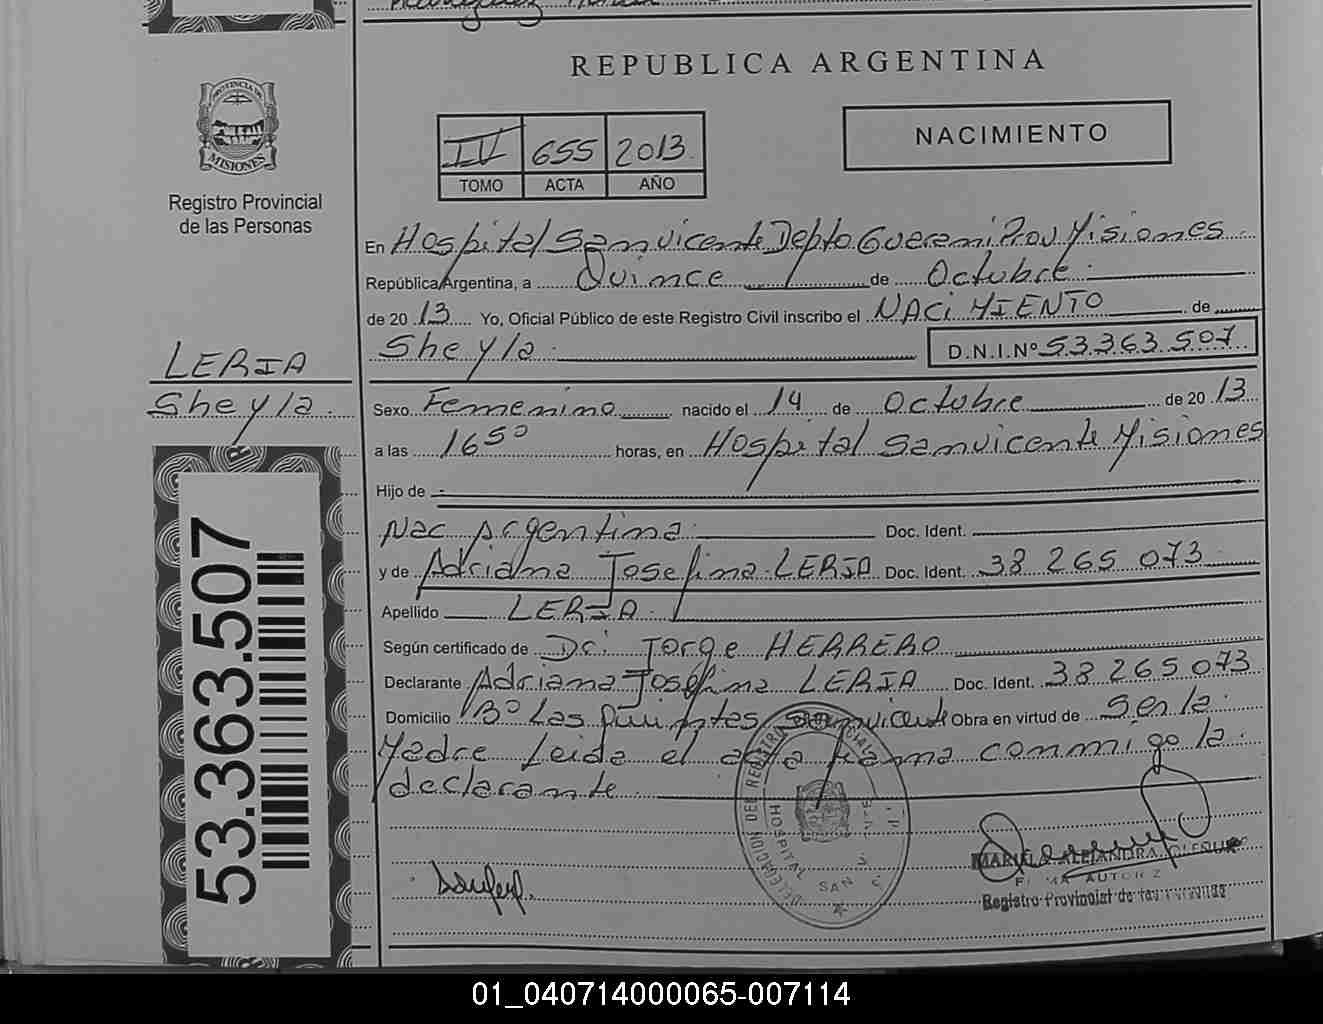 REPUBLICA ARGENTINA
PROVINCIA DE
MISIONES
Registro Provincial
de las Personas
IV 655 2013
TOMO ACTA AÑO
NACIMIENTO
En Hospital Sanvicente Depto Guarani Prov Misiones
República Argentina, a Quince de Octubre
de 2013 Yo, Oficial Público de este Registro Civil inscribo el NACIMIENTO de
Sheyla D.N.I.Nº 53363507
LERIA
Sheyla
Sexo Femenino nacido el 14 de Octubre de 2013
a las 16 50 horas, en Hospital Sanvicente Misiones
Hijo de
Nac Argentina Doc. Ident.
y de Adriana Josefina LERIA Doc. Ident. 38 265 073
Apellido LERIA
Según certificado de Dr. Jorge HERRERO
Declarante Adriana Josefina LERIA Doc. Ident. 38 265 073
Domicilio Bº Las Sanvicente Obra en virtud de Ser la
Madre Leida el acta firma conmigo la
declarante
53.363.507
DELEGACION DEL REGISTRO PROVINCIAL
HOSPITAL SAN
ALEJANDRA
Registro Provincial de las Personas
01_040714000065-007114